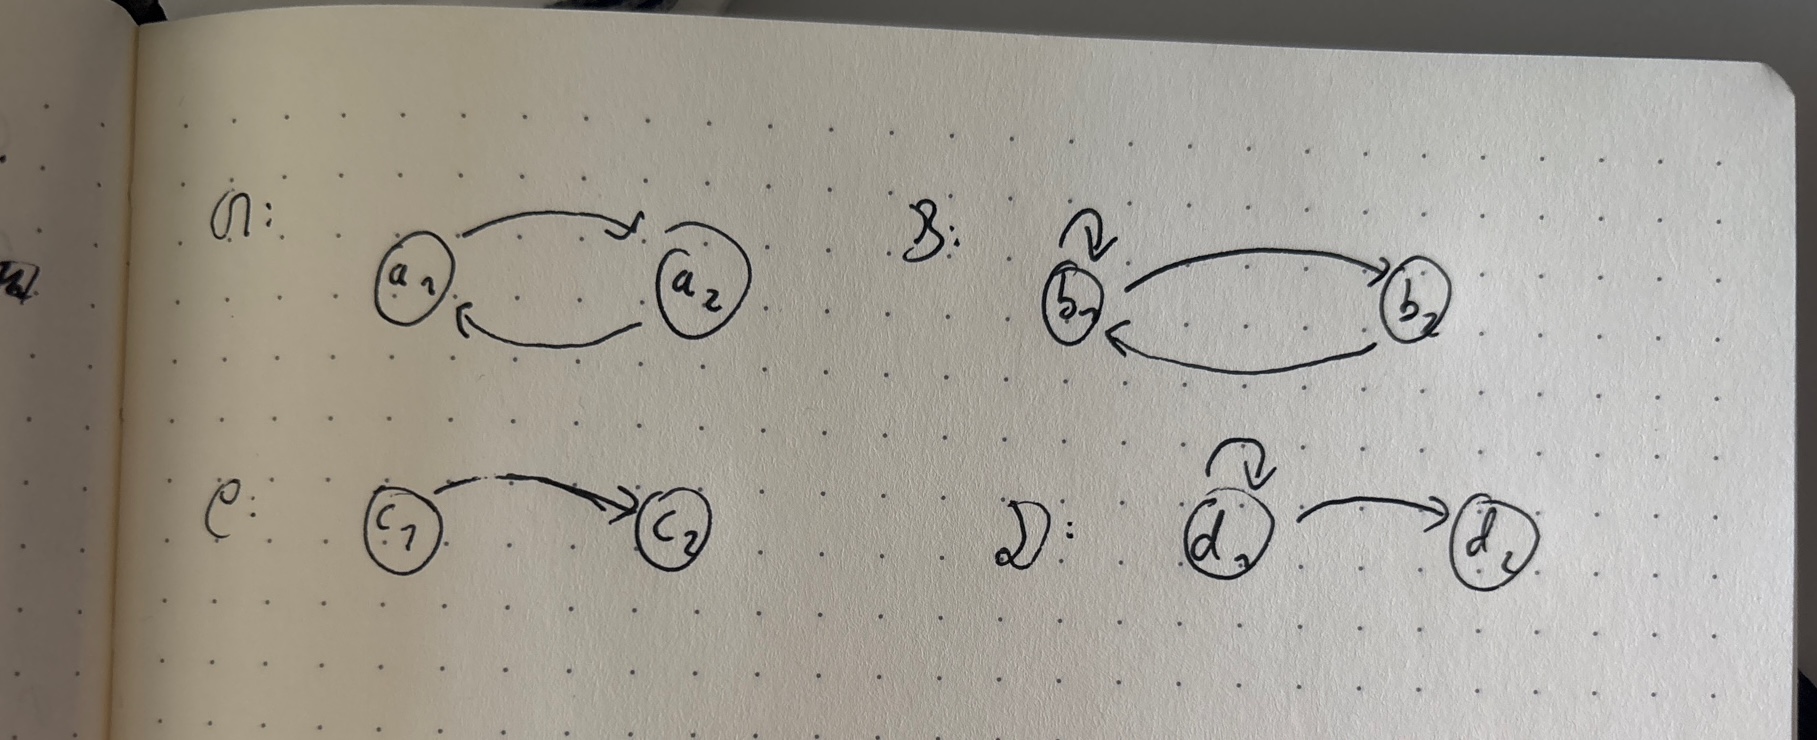 A: a₁ a₂ B: b₁ b₂
C: c₁ c₂ D: d₁ d₂